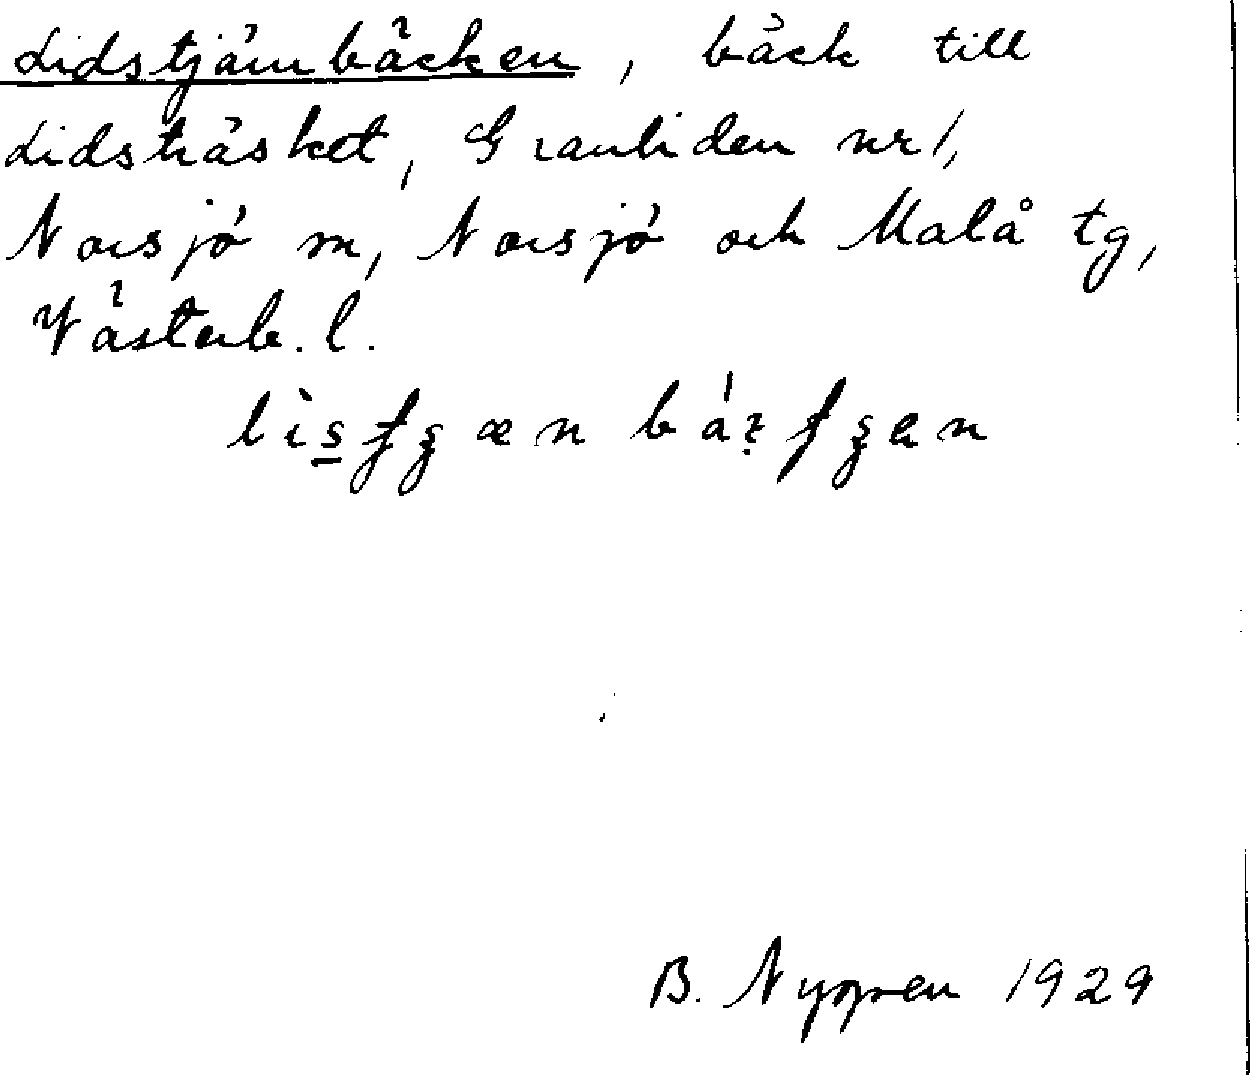 Lidstjärnbäcken, bäck till
Lidsträsket, Granliden nr 1,
Norsjö sn, Norsjö och Malå tg,
Västerb. l.
B. Nygren 1929